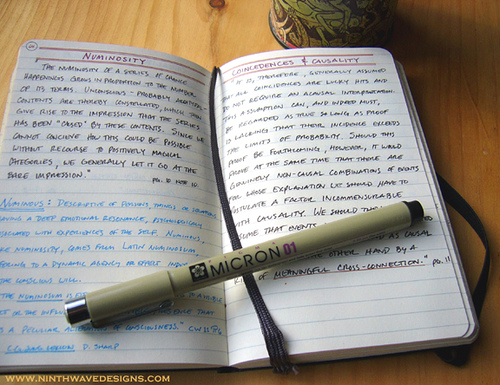 NUMINOSITY
THE NUMINOSITY OF A SERIES OF CHANCE
HAPPENINGS GROWS IN PROPORTION TO THE NUMBER
OF ITS TERMS. UNCONSCIOUS - PROBABLY ARCHETYPAL -
CONTENTS ARE THEREBY CONSTELLATED, WHICH THEN
GIVE RISE TO THE IMPRESSION THAT THE SERIES
HAS BEEN "CAUSED" BY THESE CONTENTS. SINCE WE
CANNOT CONCEIVE HOW THIS COULD BE POSSIBLE
WITHOUT RECOURSE TO POSITIVELY MAGICAL
CATEGORIES, WE GENERALLY LET IT GO AT THE
BARE IMPRESSION."
NUMINOUS: DESCRIPTIVE OF PERSONS, THINGS, OR SITUATIONS
HAVING A DEEP EMOTIONAL RESONANCE, PSYCHOLOGICALLY
ASSOCIATED WITH EXPERIENCES OF THE SELF. NUMINOUS,
NUMINOSITY, COMES FROM LATIN NUMINOSUM,
TO A DYNAMIC AGENCY OR EFFECT
THE CONSCIOUS WILL.
THE NUMINOSUM IS
OR THE THAT
A PECULIAR ALTERATION OF CONSCIOUSNESS."
LEXICON D. SHARP
COINCEDENCES & CAUSALITY
"IF IT, THEREFORE, GENERALLY ASSUMED
THAT ALL COINCIDENCES ARE LUCKY HITS AND
DO NOT REQUIRE AN ACAUSAL INTERPRETATION.
THIS ASSUMPTION CAN, AND INDEED MUST,
BE REGARDED AS TRUE SO LONG AS PROOF
IS LACKING THAT THEIR INCIDENCE EXCEEDS
THE LIMITS OF PROBABILITY. SHOULD THIS
PROOF BE FORTHCOMING, HOWEVER, IT WOULD
PROVE AT THE SAME TIME THAT THERE ARE
GENUINELY NON-CAUSAL COMBINATIONS OF EVENTS
FOR WHOSE EXPLANATION WE SHOULD HAVE TO
POSTULATE A FACTOR INCOMMENSURABLE
WITH CAUSALITY. WE SHOULD THEN
SOME THAT EVENTS
AS CAUSAL
THE OTHER HAND BY A
KIND OF MEANINGFUL CROSS-CONNECTION." pg. 11
MICRON 01
WWW.NINTHWAVEDESIGNS.COM